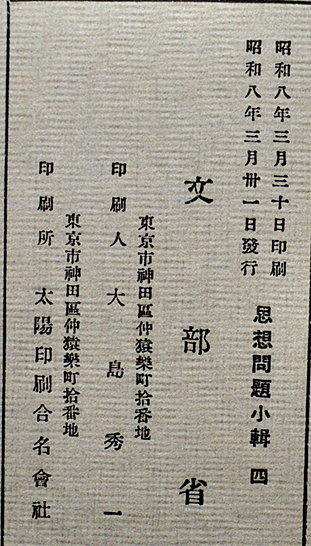 昭和八年三月三十日印刷
昭和八年三月卅一日發行
思想問題小輯 四
文部省
東京市神田區仲猿樂町拾番地
印刷人 大島秀一
東京市神田區仲猿樂町拾番地
印刷所 太陽印刷合名會社